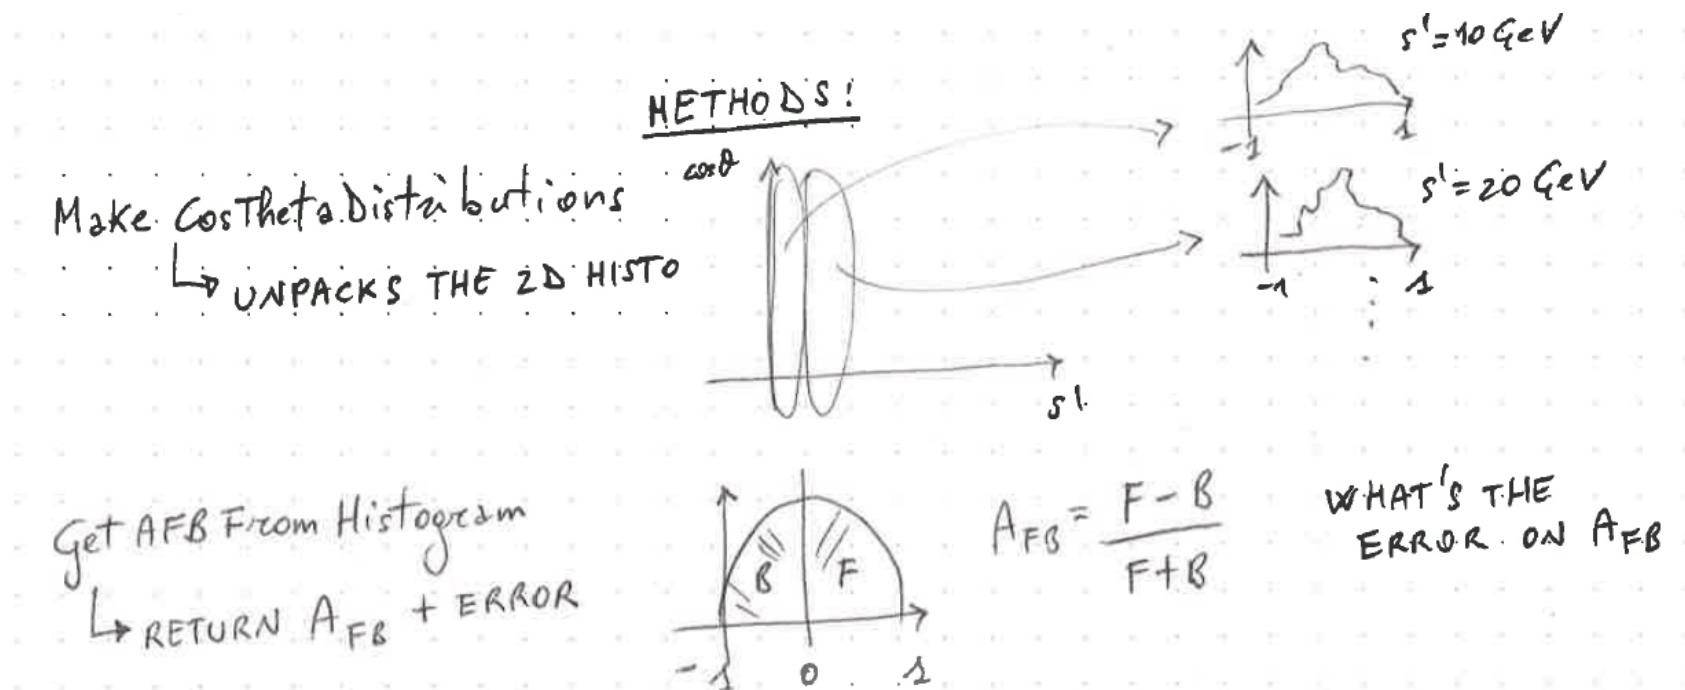 METHODS!
Make CosThetaDistributions
↳ UNPACKS THE 2D HISTO
cosθ
s'
s'=10 GeV
-1 1
s'=20 GeV
-1 1
Get AFB From Histogram
↳ RETURN A_FB + ERROR
B F
-1 0 1
A_FB = F-B / F+B
WHAT'S THE
ERROR ON A_FB